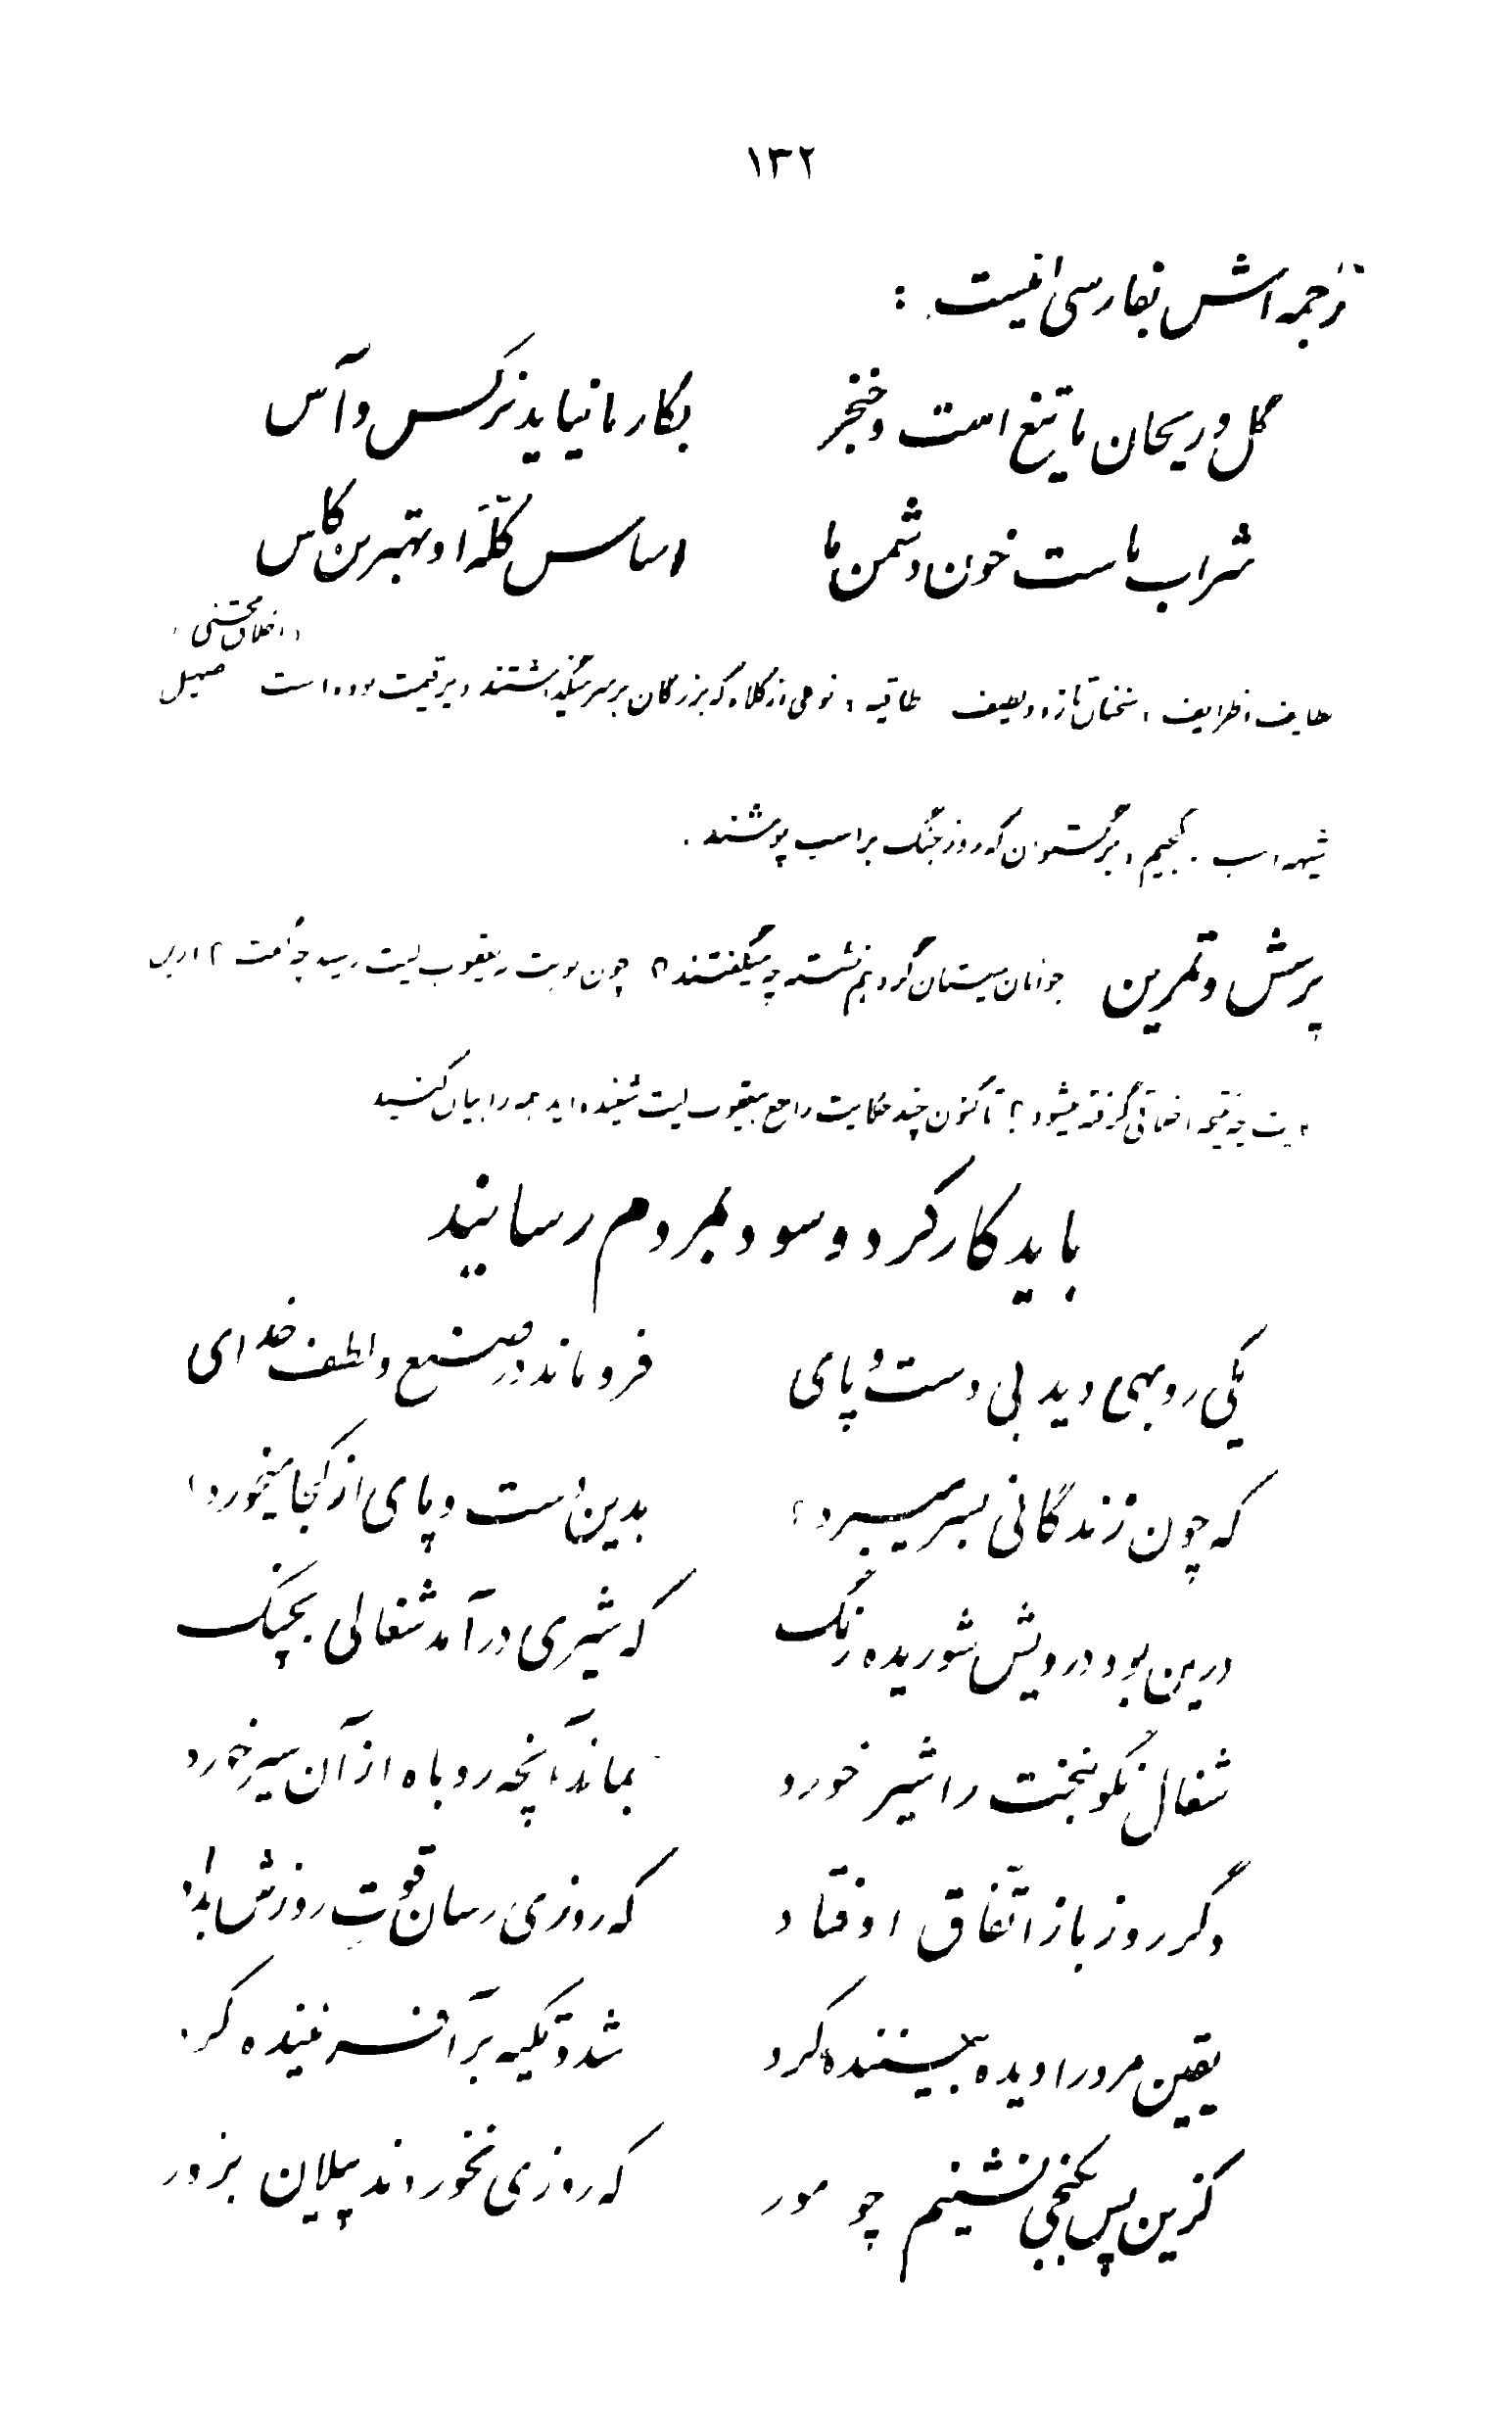 ۱۳۲
ترجمه اش بفارسی اینست :
گل و ریحان ما تیغ است و خنجر    بکار ما نیاید نرگس و آس
شراب ماست خون دشمن ما    اساس کلّهٔ او بهترین کاس
« اخلاق محسنی »
ظرایف ، سخنان تازه و لطیف    طاقیه ، نوعی از کلاه که بزرگان بر سر میگذاشتند و پر قیمت بوده است    صهیل
شیهه اسب . کجیم ، برگستوان که روز جنگ بر اسب پوشند .
پرسش و تمرین    جوانان سیستان گرد هم نشسته چه میگفتند ؟ چون نوبت بیعقوب لیث رسید چه گفت ؟ از این
حکایت چه نتیجه اخلاقی گرفته میشود ؟ تاکنون چند حکایت راجع بیعقوب لیث شنیده اید همه را بیان کنید
باید کار کرد و سود بمردم رسانید
یکی روبهی دید بی دست و پای    فرو ماند در صنع و لطف خدای
که چون زندگانی بسر میبرد ؟    بدین دست و پای از کجا میخورد ؟
درین بود درویش شوریده رنگ    که شیری درآمد شغالی بچنگ
شغال نگونبخت را شیر خورد    بماند آنچه روباه از آن سیر خورد
دگر روز باز اتّفاق اوفتاد    که روزی رسان قوت روزش بداد
یقین مرد را دیده بیننده کرد    شد و تکیه بر آفریننده کرد
کزین پس بکنجی نشینم چو مور    که روزی نخوردند پیلان بزور